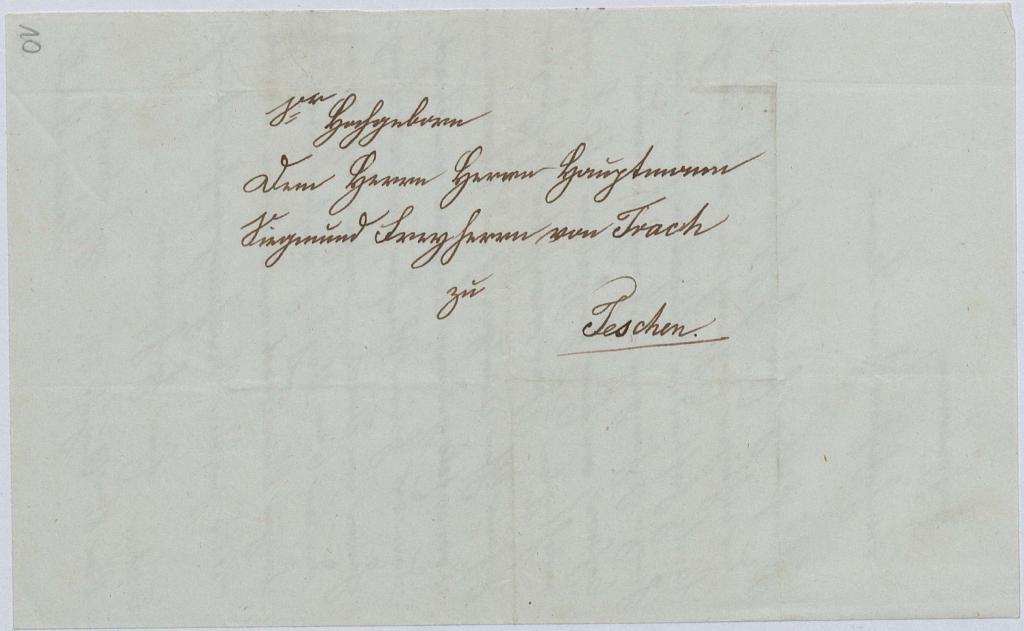 Sr Hochgeborn
Dem Herrn Herrn Hauptmann
Siegmund Freyherrn von Trach
zu
Teschen.